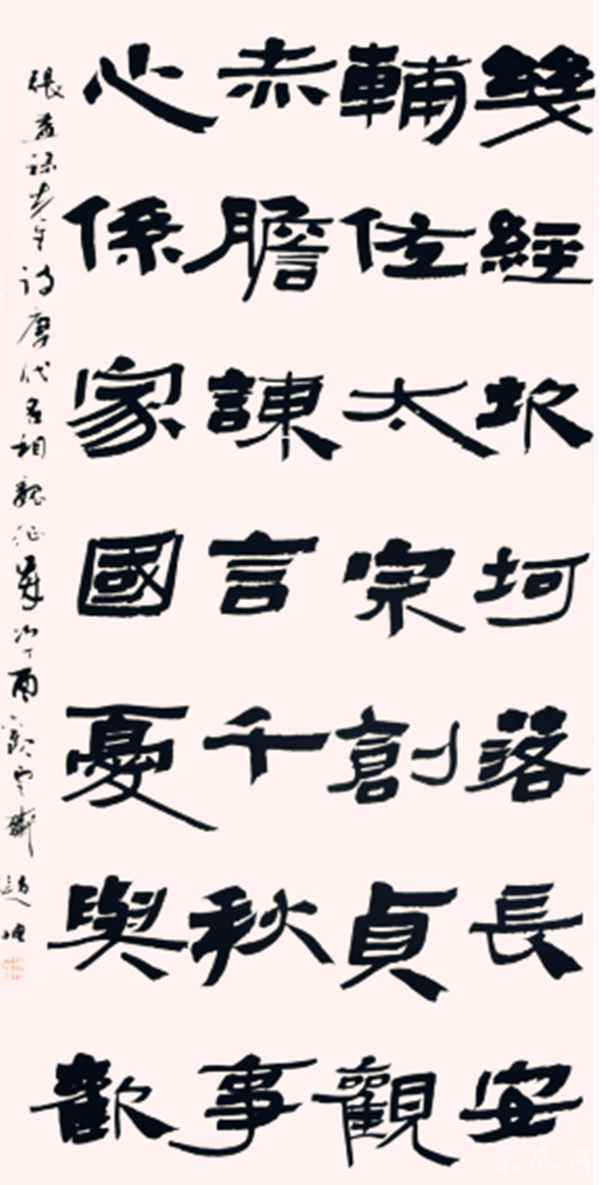 幾經坎坷落長安
輔佐太宗創貞觀
赤膽諫言千秋事
心係家國憂與歡
張 先生诗唐代名相魏征歲次丁酉